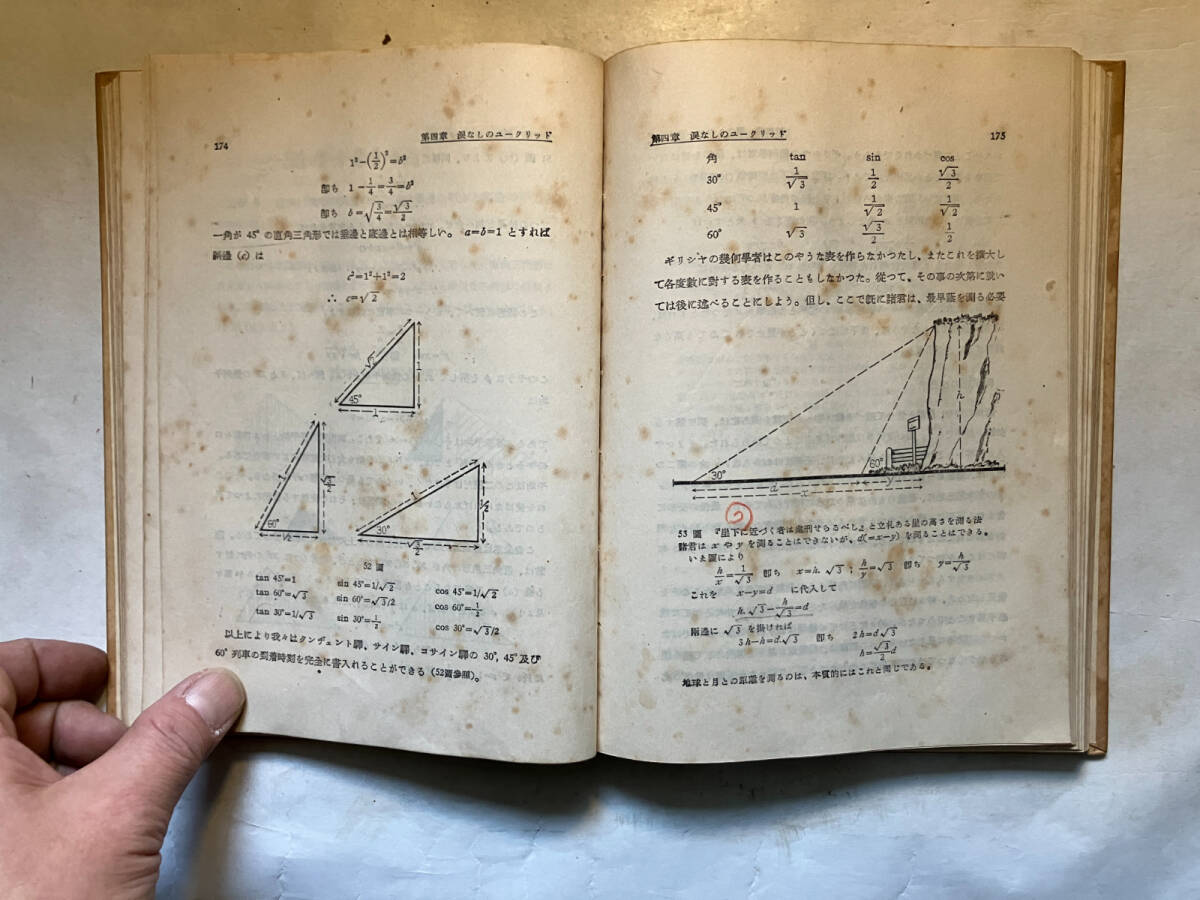 174
第四章 涙なしのユークリッド
1²−(1/2)²=b²
即ち 1−1/4=3/4=b²
即ち b=√(3/4)=√3/2
一角が 45° の直角三角形では垂邊と底邊とは相等しい。 a=b=1 とすれば
斜邊(c)は
c²=1²+1²=2
∴ c=√2
√2
1
45°
1
√3/2
60°
1/2
1
1/2
30°
√3/2
52 圖
tan 45°=1 sin 45°=1/√2 cos 45°=1/√2
tan 60°=√3 sin 60°=√3/2 cos 60°=1/2
tan 30°=1/√3 sin 30°=1/2 cos 30°=√3/2
以上により我々はタンヂェント驛,サイン驛,コサイン驛の 30°, 45° 及び
60° 列車の到着時刻を完全に書入れることができる (52圖參照)。
第四章 涙なしのユークリッド
175
角 tan sin cos
30° 1/√3 1/2 √3/2
45° 1 1/√2 1/√2
60° √3 √3/2 1/2
ギリシヤの幾何學者はこのやうな表を作らなかつたし、またこれを擴大し
て各度數に對する表を作ることもしなかつた。從つて、その事の次第に就い
ては後に述べることにしよう。但し、ここで既に諸君は、最早蔭を測る必要
h
30°
60°
d
x
y
53 圖 『崖下に近づく者は處刑せらるべし』と立札ある崖の高さを測る法
諸君は x や y を測ることはできないが、d(=x−y) を測ることはできる。
いま圖により
h/x=1/√3 即ち x=h.√3 ; h/y=√3 即ち y=h/√3
これを x−y=d に代入して
h.√3−h/√3=d
兩邊に √3 を掛ければ
3h−h=d.√3 即ち 2h=d√3
h=√3/2 d
地球と月との距離を測るのは、本質的にはこれと同じである。